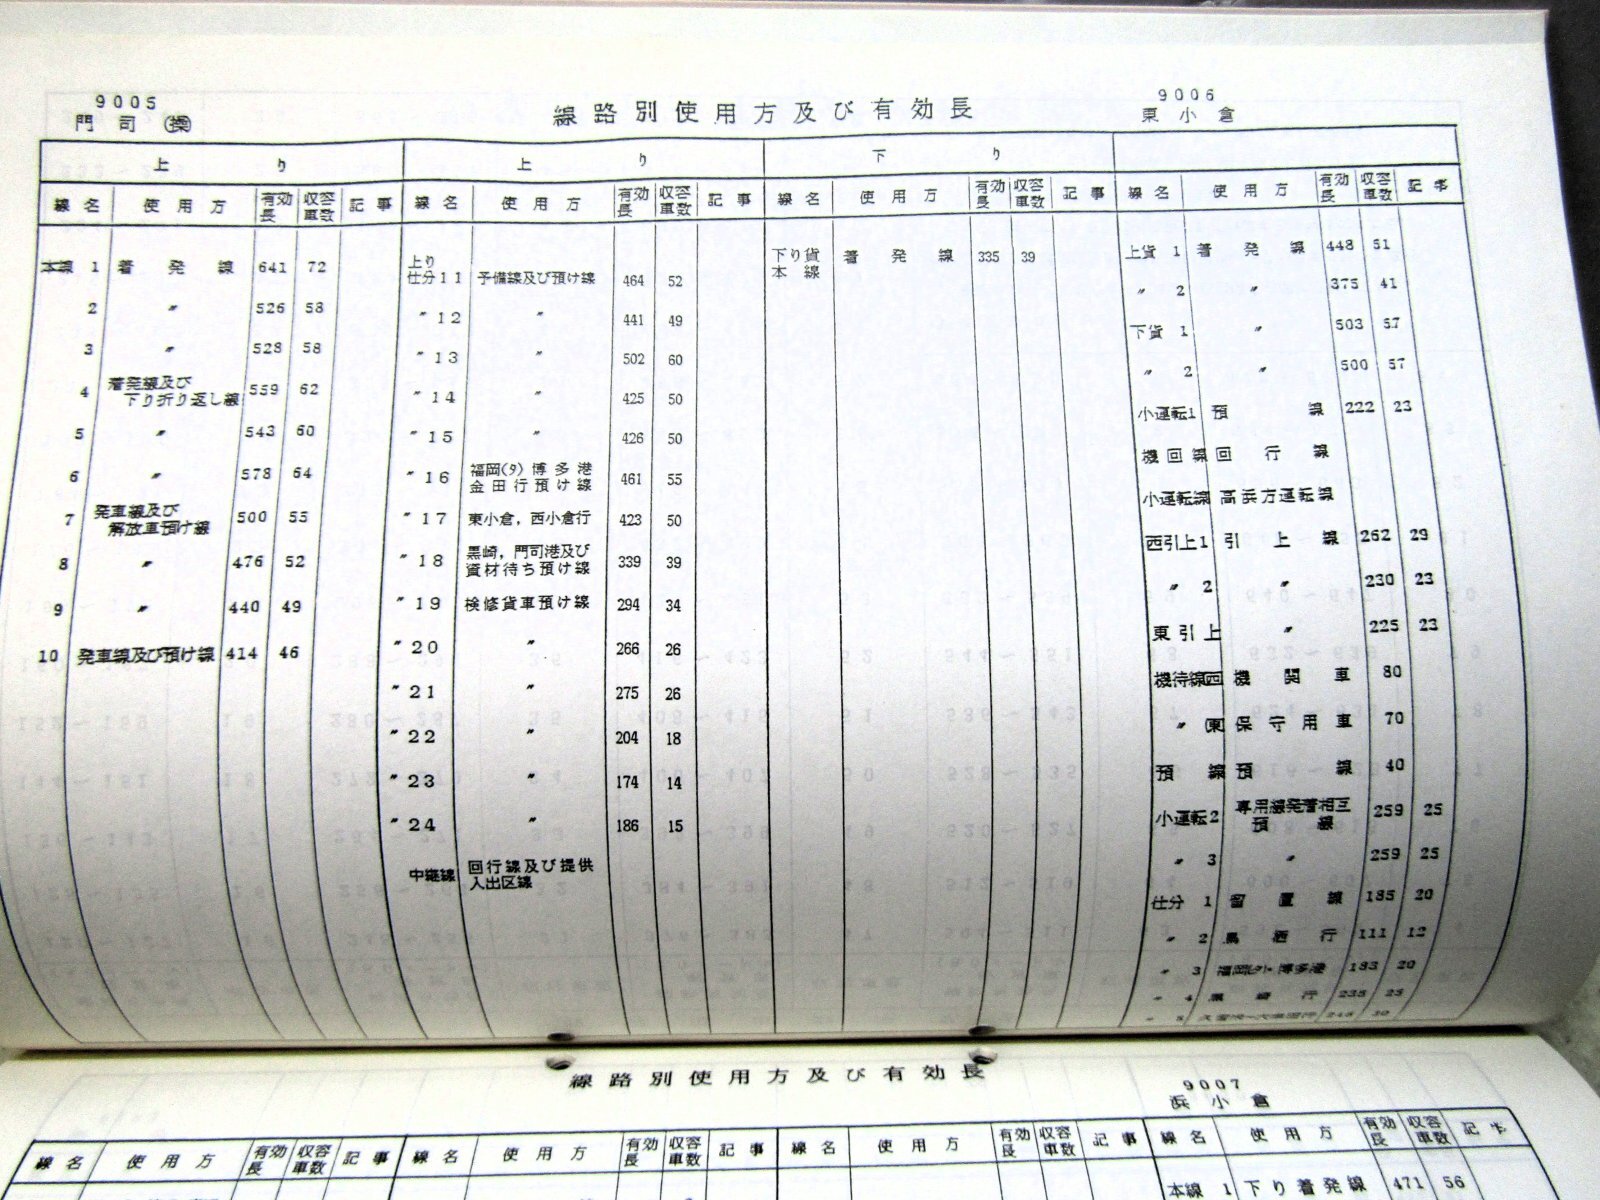 9005
門司㋲
線路別使用方及び有効長
9006
東小倉
上り 上り 下り
線名 使用方 有効長 収容車数 記事 線名 使用方 有効長 収容車数 記事 線名 使用方 有効長 収容車数 記事 線名 使用方 有効長 収容車数 記事
本線 1 着発線 641 72
2 〃 526 58
3 〃 528 58
4 着発線及び
下り折り返し線 559 62
5 〃 543 60
6 〃 578 64
7 発車線及び
解放車預け線 500 55
8 〃 476 52
9 〃 440 49
10 発車線及び預け線 414 46
上り
仕分11 予備線及び預け線 464 52
〃12 〃 441 49
〃13 〃 502 60
〃14 〃 425 50
〃15 〃 426 50
〃16 福岡(タ)博多港
金田行預け線 461 55
〃17 東小倉,西小倉行 423 50
〃18 黒崎,門司港及び
資材待ち預け線 339 39
〃19 検修貨車預け線 294 34
〃20 〃 266 26
〃21 〃 275 26
〃22 〃 204 18
〃23 〃 174 14
〃24 〃 186 15
中継線 回行線及び提供
入出区線
下り貨
本線 着発線 335 39
上貨 1 着発線 448 51
〃 2 〃 375 41
下貨 1 〃 503 57
〃 2 〃 500 57
小運転1 預線 222 23
機回線 回行線
小運転線 高浜方運転線
西引上1 引上線 262 29
〃 2 〃 230 23
東引上 〃 225 23
機待線(西) 機関車 80
〃 (東) 保守用車 70
預線 預線 40
小運転2 専用線発着相互
預線 259 25
〃 3 〃 259 25
仕分 1 留置線 185 20
〃 2 111 12
〃 3 博多港 183 20
〃 4 黒崎行 235 25
〃 5
線路別使用方及び有効長
9007
浜小倉
線名 使用方 有効長 収容車数 記事 線名 使用方 有効長 収容車数 記事 線名 使用方 有効長 収容車数 記事 線名 使用方 有効長 収容車数 記事
本線 1 下り着発線 471 56